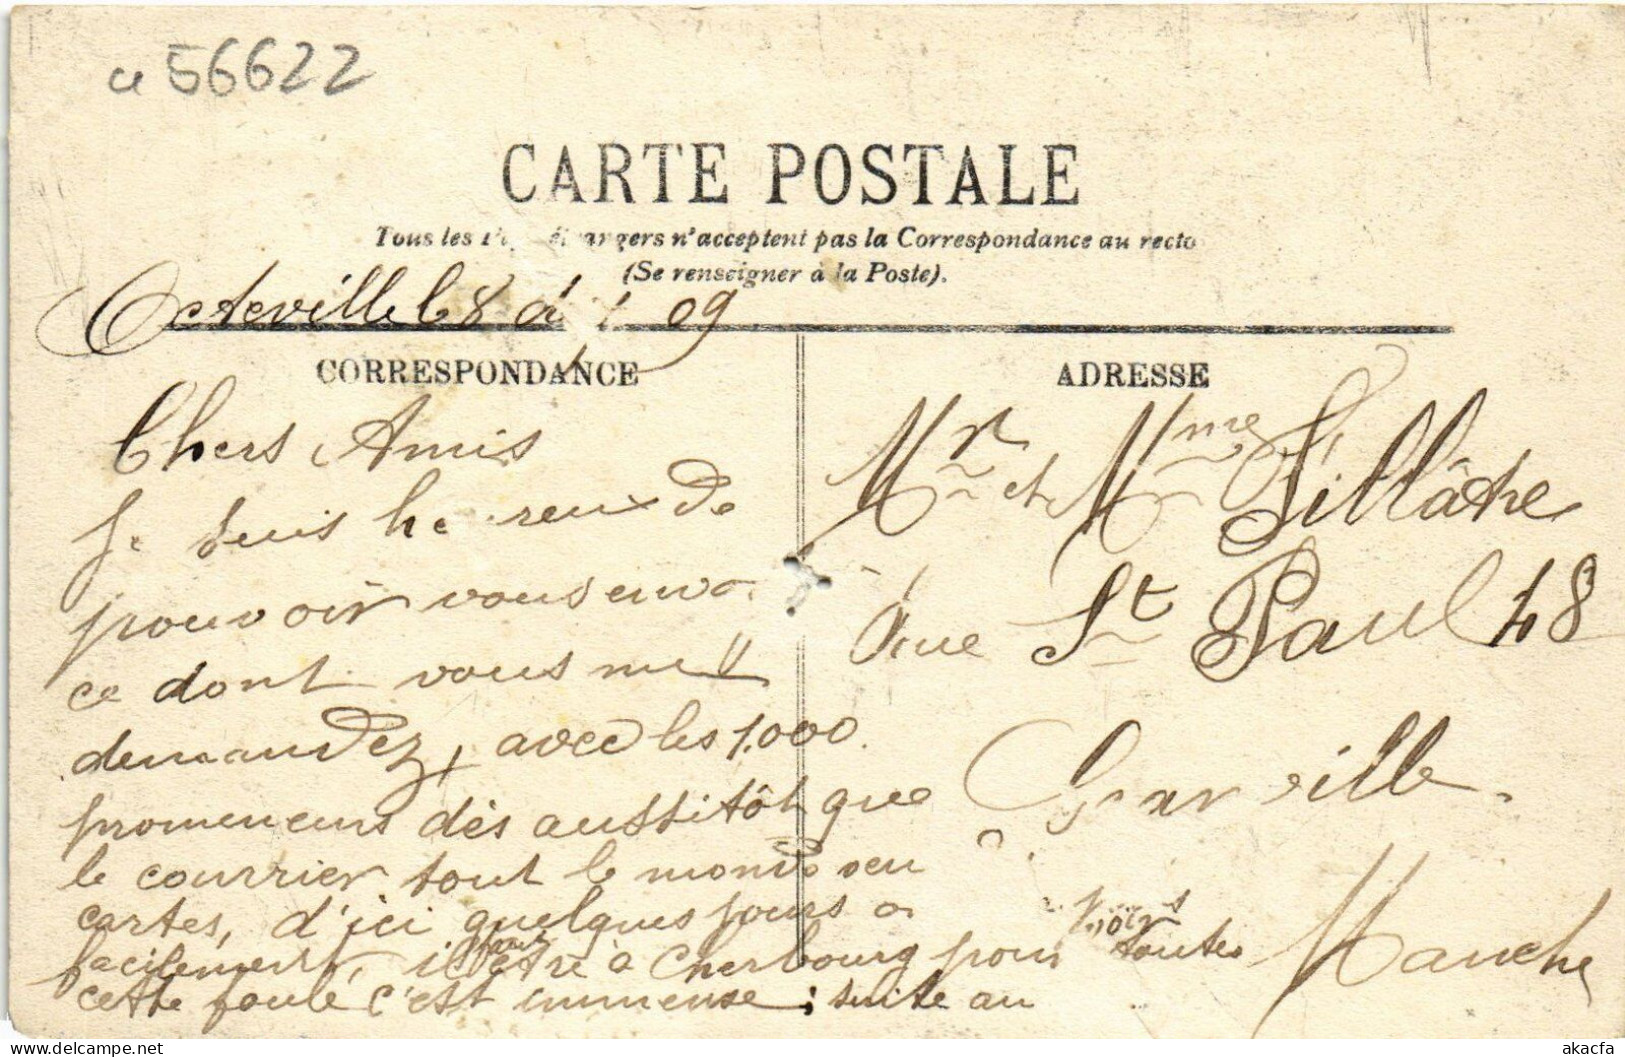 56622
CARTE POSTALE
Tous les étrangers n'acceptent pas la Correspondance au recto
(Se renseigner à la Poste).
Octeville le 8 09
CORRESPONDANCE
Chers Amis
Je suis heureux de
pouvoir vous
ce dont vous me
demandez, avec les 1.000
promeneurs dès aussitôt que
le courrier tout le monde
cartes, d'ici quelques jours
facilement, il faut être à Cherbourg pour voir toutes
cette foule c'est immense; suite au
ADRESSE
Mr et Mme Fillâtre
rue St Paul 48
Granville
Manche
akacfa